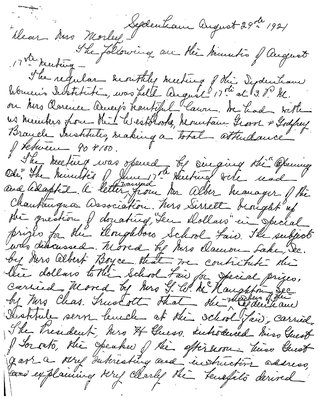 Sydenham August 29th 1921
Dear Mrs Morley,
The following are the minutes of August
17th meeting —
The regular monthly meeting of the Sydenham
Women's Institute, was held August 17th at 3 P.M.
on Mrs Clarence beautiful lawn. We had with
us members from the Westbrooke, Mountain Grove & Godfrey
Branch Institutes, making a total attendance
of between 90 & 100.
The meeting was opened by singing the "Opening
Ode". The minutes of June 17th meeting were read
and adopted. A letter from Mr Alter manager of the
Chautauqua Association. Mrs Sirrett brought up
the question of donating, "Ten Dollars" in special
prizes for the School Fair. The subject
was discussed. Moved by Mrs Damon Lake Sec.
by Mrs Albert Boyce that we contribute the
ten dollars to the School Fair for special prizes.
Carried. Moved by Mrs Y. W. McNaughton Sec
by Mrs Chas. Truscott that the Sydenham
Institute serve lunch at the School Fair, carried.
The President, Mrs H Guess, introduced Miss Guest
of Toronto, the speaker of the afternoon. Miss Guest
gave a very interesting and instructive address,
explaining very clearly the benefits derived